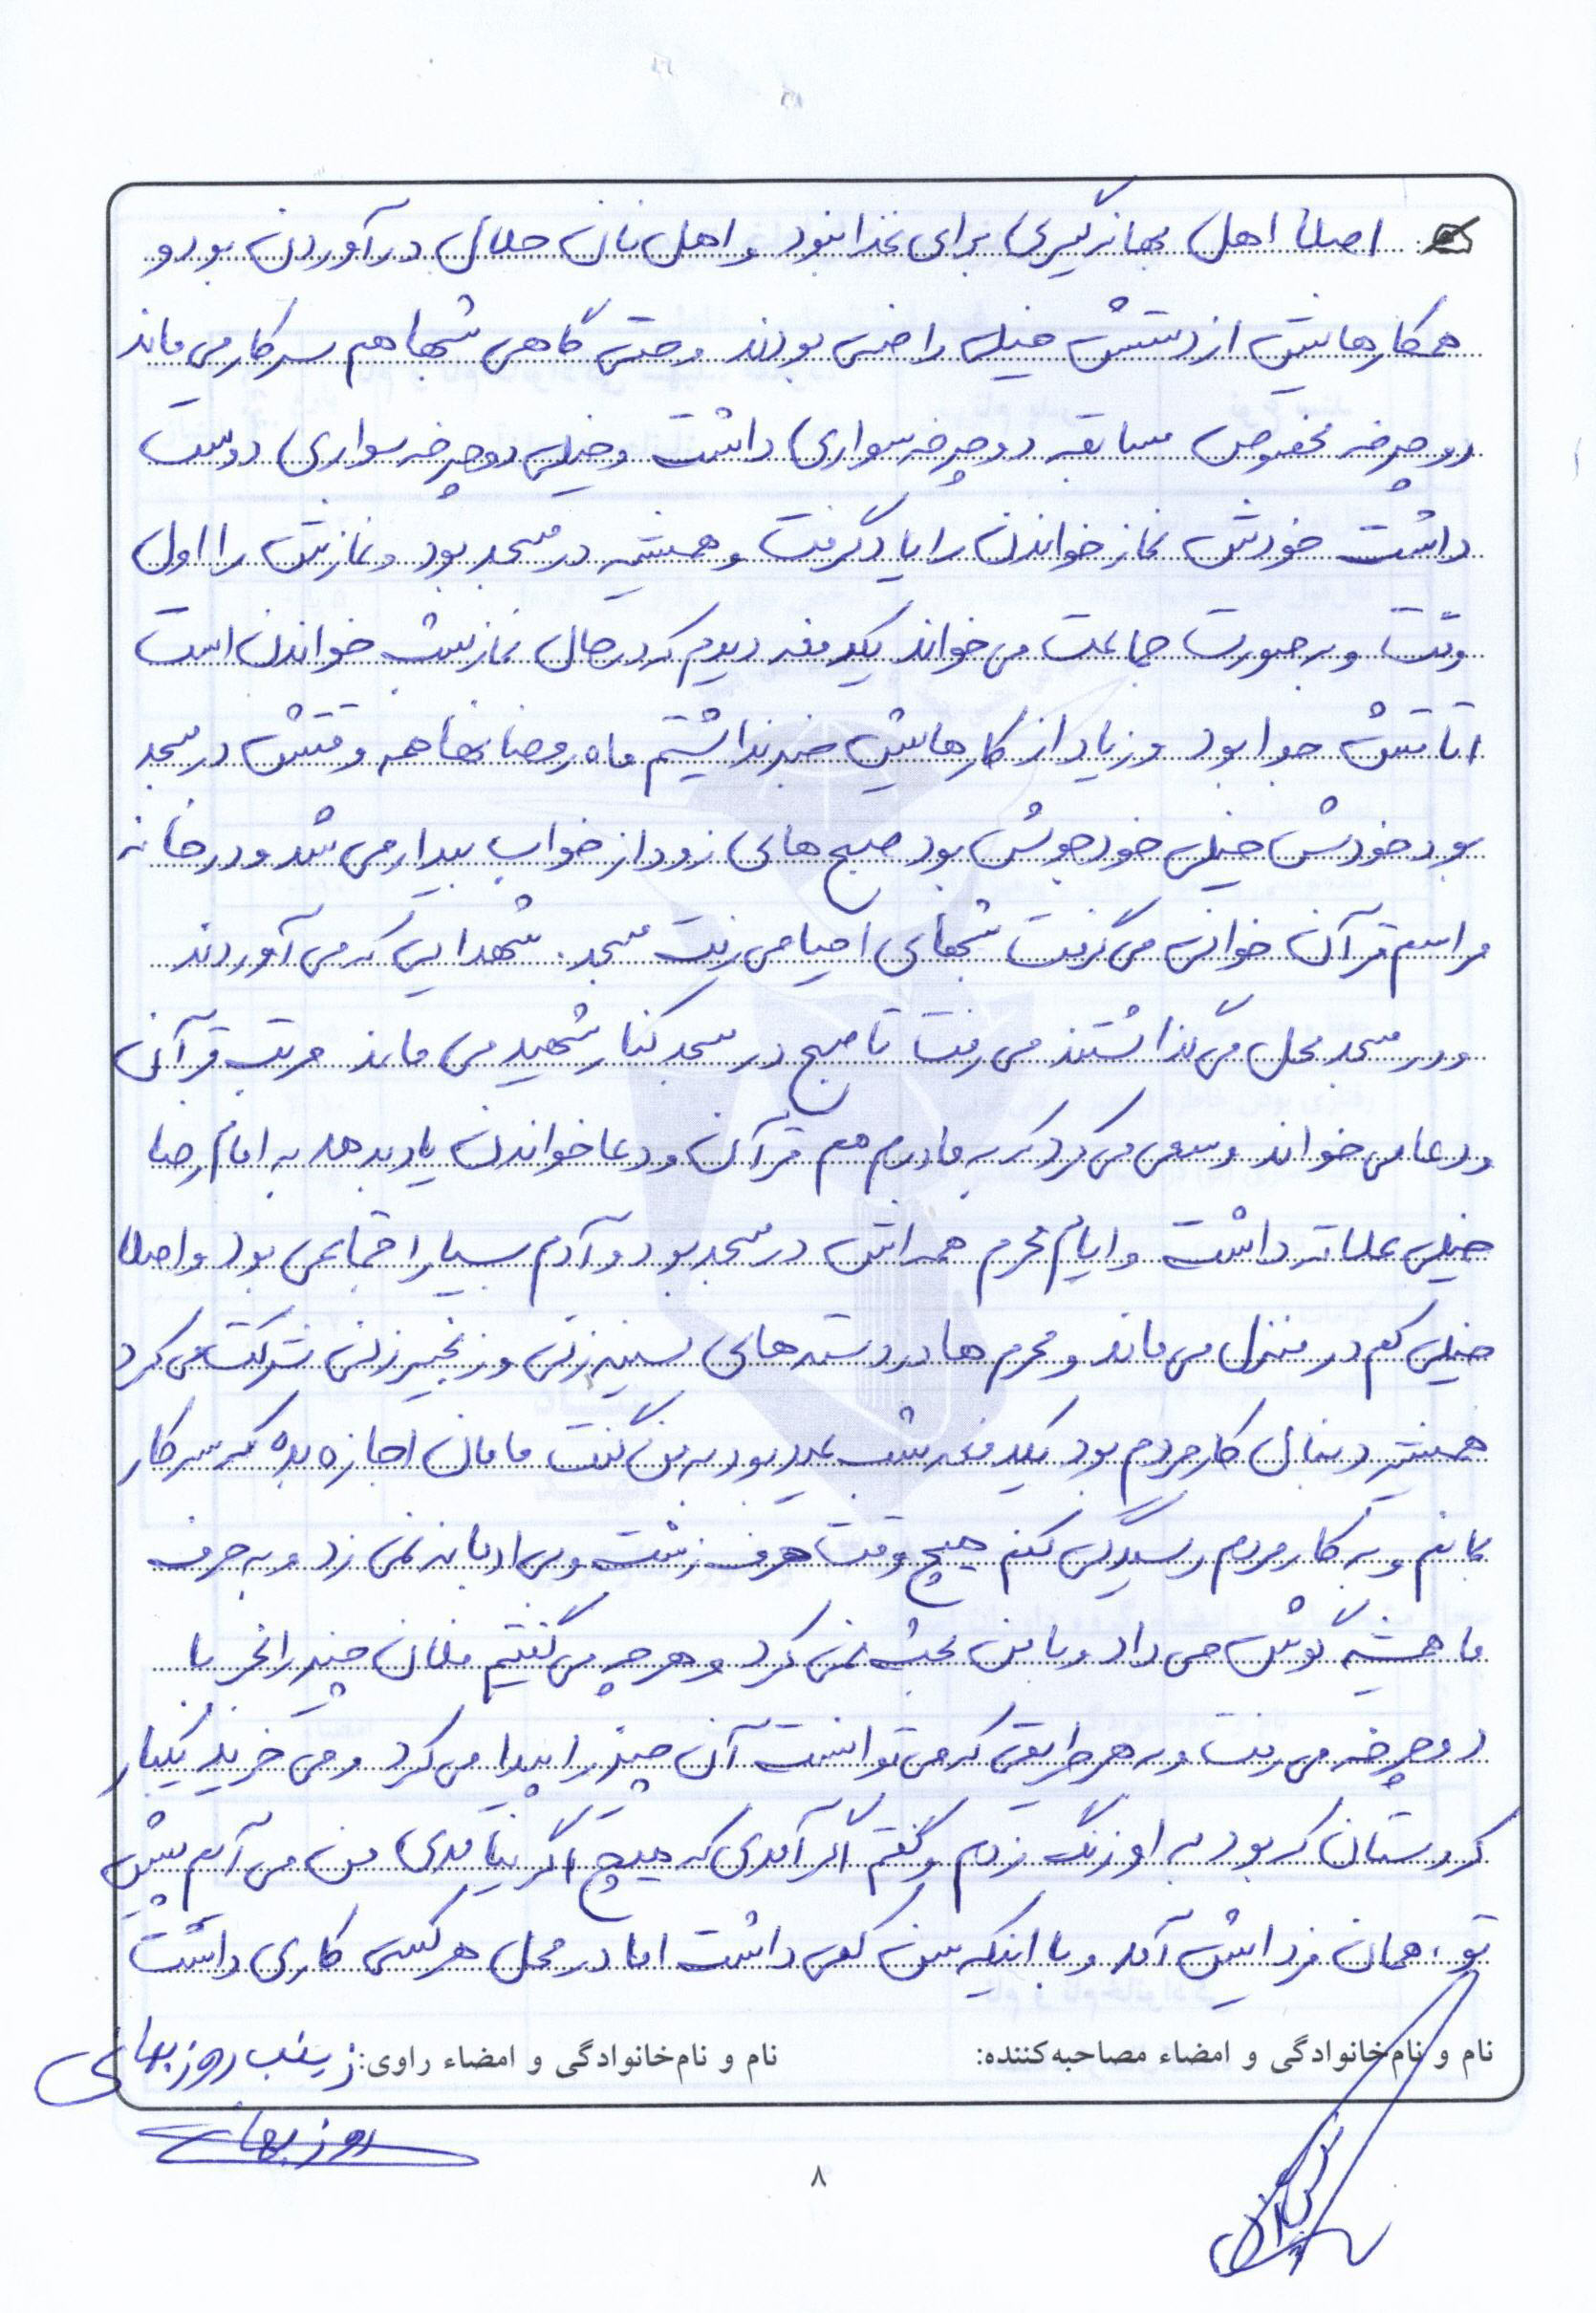 اصلاً اهل بهانه‌گیری برای غذا نبود و اهل نان حلال در آوردن بود و
همکارهایش از دستش خیلی راضی بودند و حتی گاهی شبها هم سر کار می‌ماند
دوچرخه مخصوص مسابقه دوچرخه سواری داشت و خیلی دوچرخه سواری دوست
داشت خودش نماز خواندن را یاد گرفت و همیشه در مسجد بود و نمازش را اول
وقت و به صورت جماعت می‌خواند یکدفعه دیدم که در حال نماز شب خواندن است
اتاقش جدا بود و زیاد از کارهایش خبر نداشتیم ماه رمضانها همه وقتش در مسجد
بود خودش خیلی خودجوش بود صبح های زود از خواب بیدار می شد و در خانه
مراسم قرآن خوانی می گرفت شبهای احیا می رفت مسجد. شهدایی که می آوردند
و در مسجد محل می گذاشتند می رفت تا صبح در مسجد کنار شهید می ماند مرتب قرآن
و دعا می خواند و سعی می کرد که به مادرم هم قرآن و دعا خواندن یاد بدهد به امام رضا
خیلی علاقه داشت و ایام محرم همه اش در مسجد بود و آدم بسیار اجتماعی بود و اصلا
خیلی کم در منزل می ماند و محرم ها در دسته های سینه زنی و زنجیر زنی شرکت می کرد
همیشه دنبال کار مردم بود یکدفعه شب عید بود به من گفت مامان اجازه بده که سر کار
بمانم و به کار مردم رسیدگی کنم هیچ وقت حرف زشت و بی ادبانه نمی زد و به حرف
ما همیشه گوش می داد و با من بحث نمی کرد و هر چه می گفتیم فلان چیز را بخر با
دوچرخه می رفت و به هر طریقی که می توانست آن چیز را پیدا می کرد و می خرید یکبار
کردستان که بود به او زنگ زدم و گفتم اگر آمدی که هیچ اگر نیامدی من می آیم پیش
تو، همان فردایش آمد و با اینکه سن کمی داشت اما در محل هر کسی کاری داشت
نام و نام‌خانوادگی و امضاء مصاحبه‌کننده: نام و نام‌خانوادگی و امضاء راوی: زینب روزبهانی
روزبهانی
۸